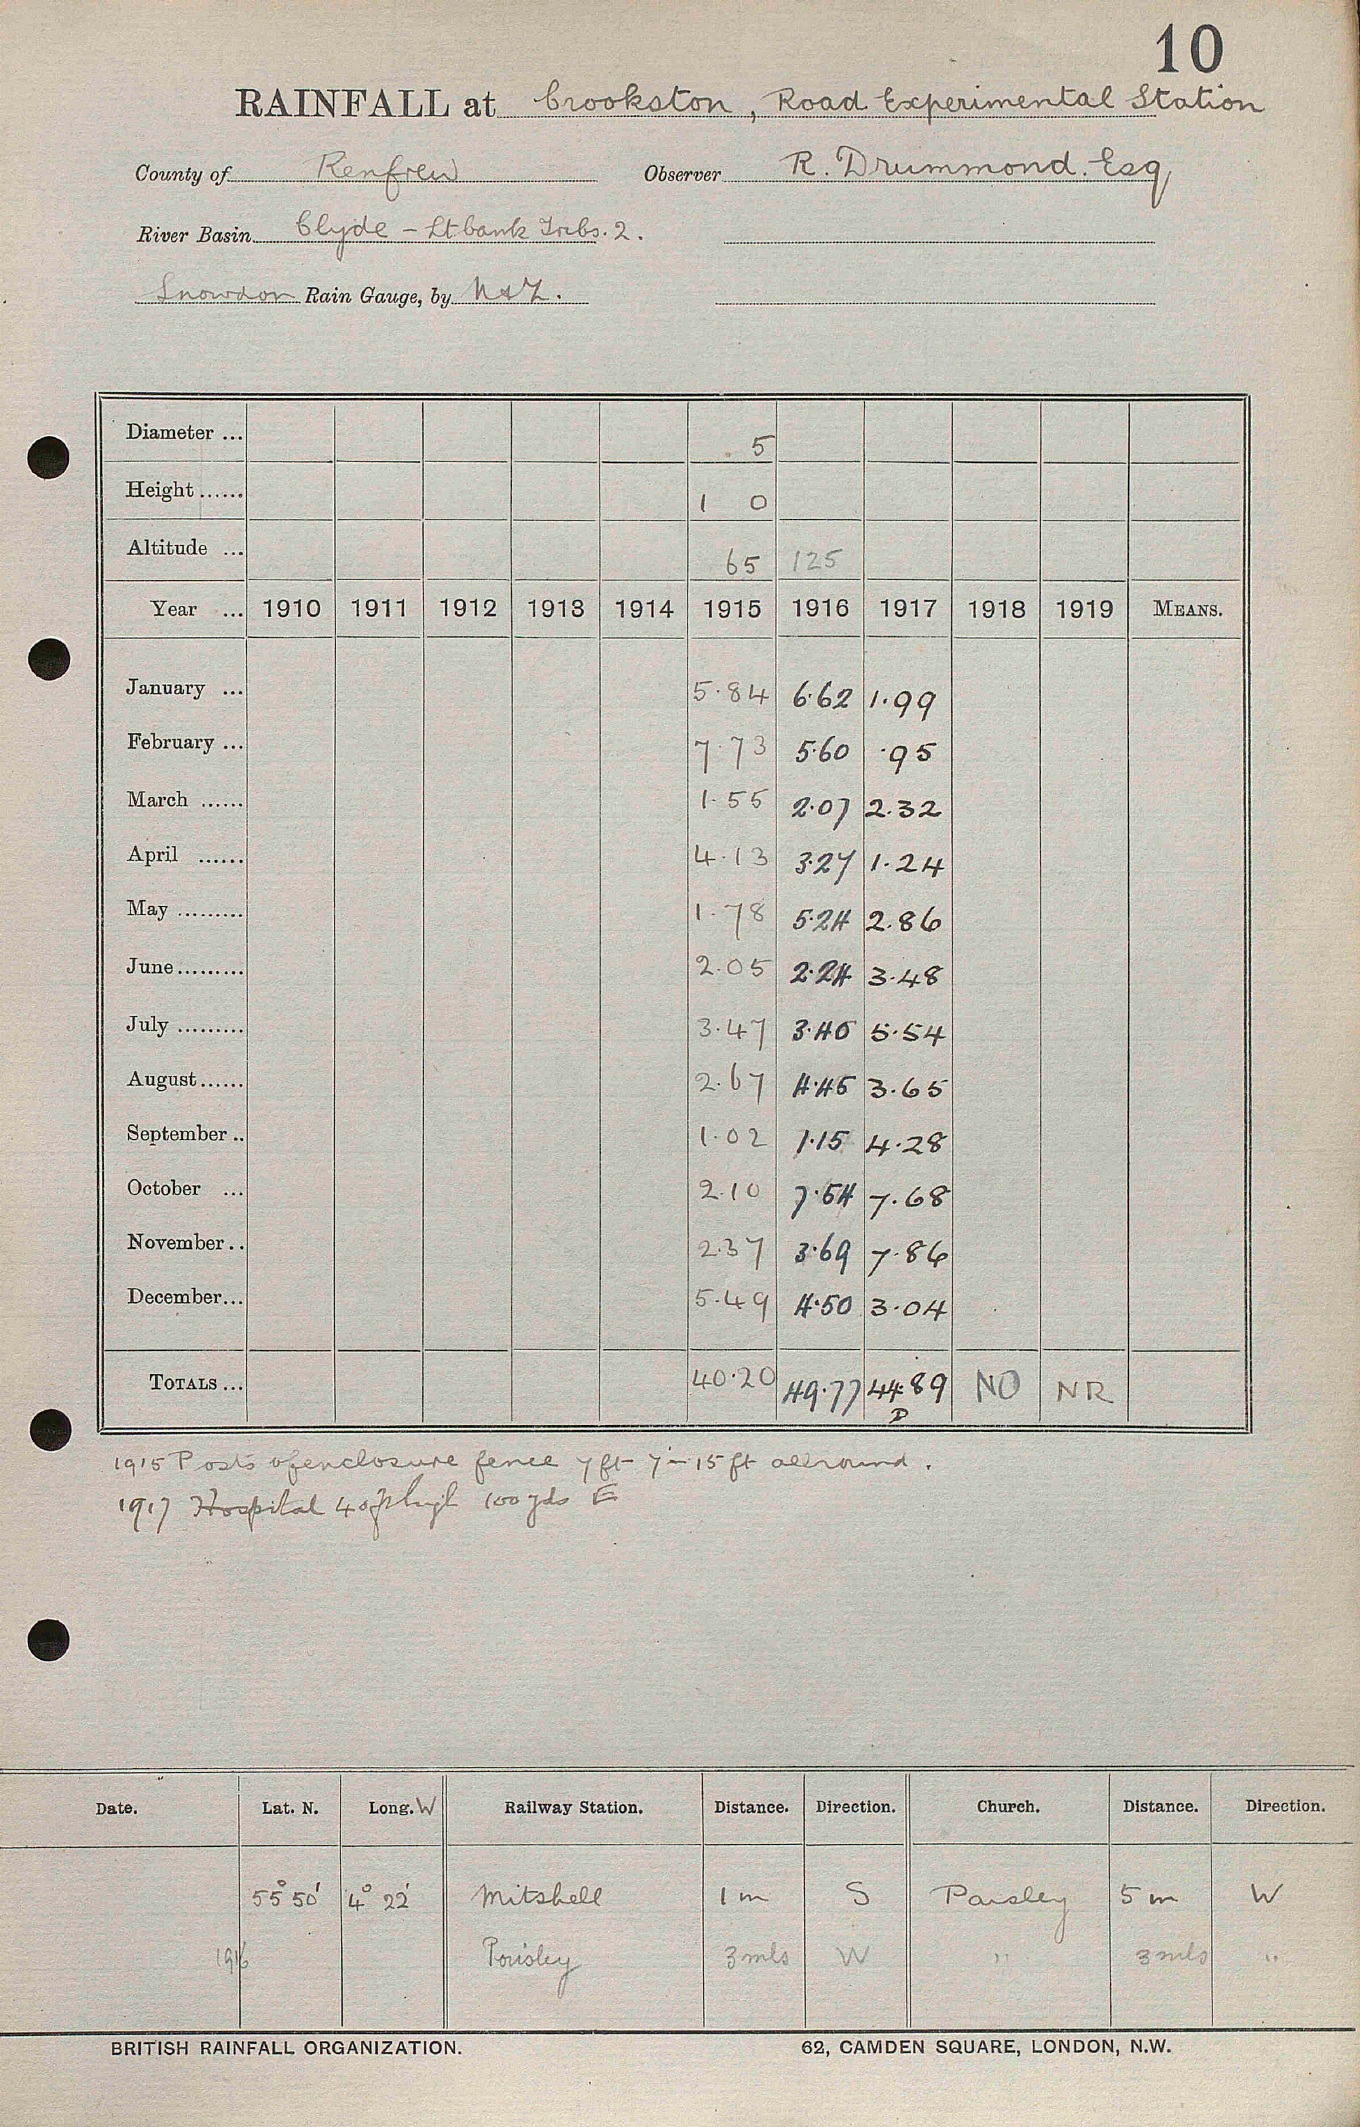 10
RAINFALL at Crookston, Road Experimental Station
County of Renfrew Observer R. Drummond. Esq
River Basin Clyde - Lt bank Tribs. 2.
Snowdon Rain Gauge, by N & Z.
Diameter ... 5
Height ...... 1 0
Altitude ... 65 125
Year ... 1910 1911 1912 1913 1914 1915 1916 1917 1918 1919 MEANS.
January ... 5.84 6.62 1.99
February ... 7.73 5.60 .95
March ...... 1.55 2.07 2.32
April ...... 4.13 3.27 1.24
May ......... 1.78 5.24 2.86
June ......... 2.05 2.24 3.48
July ......... 3.47 3.40 5.54
August ...... 2.67 4.45 3.65
September .. 1.02 1.15 4.28
October ... 2.10 7.54 7.68
November .. 2.37 3.69 7.86
December ... 5.49 4.50 3.04
TOTALS ... 40.20 49.77 44.89 NO NR
D
1915 Posts of enclosure fence 7 ft 7 in 15 ft all round.
1917 Hospital 40 ft high 100 yds E
Date. Lat. N. Long. W Railway Station. Distance. Direction. Church. Distance. Direction.
55° 50' 4° 22' Mitshell 1 m S Paisley 5 m W
1916 Paisley 3 mls W " 3 mls "
BRITISH RAINFALL ORGANIZATION. 62, CAMDEN SQUARE, LONDON, N.W.